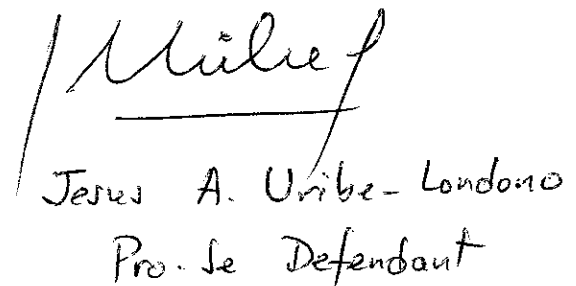 Jesus A. Uribe-Londono
Pro-Se Defendant